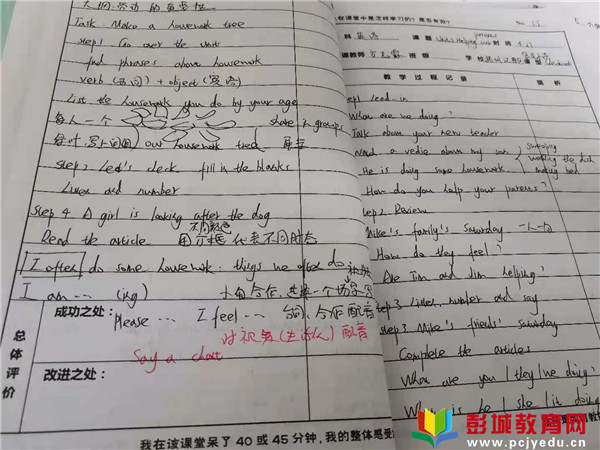 大问:劳动的重要性
Task: Make a housework tree
step1 Go over the unit
find phrases about housework
verb (动词) + object (宾语)
List the housework you do by your age
每人一个
share in groups
our housework tree
step2 Let's check fill in the blanks
Listen and number
step 4 A girl is looking after the dog
Read the article
不同颜色
代表不同时态
I often do some housework: things we often do
I am ... (ing)
成功之处:
Please ... I feel ... 合作配音
对视频(生活化)配音
Say a chant
总体评价
改进之处:
我在该课堂呆了40或45分钟,我的整体感受
在课堂中是怎样学习的?是否有效?
No. 15
科 英语 课题 helping our parents 时间
课教师 班级 学校
教学过程记录 简析
step1 Lead-in
What are we doing?
Talk about your new teacher
Watch a vedio about my son
sweeping
washing the dish
making bed
He is doing some housework.
How do you help your parents?
step2 Review
Mike's family's Saturday
How do they feel?
Are Tim and Jim helping?
step3 Listen, number and say
step3 Mike's friends' Saturday
Complete the articles
What are you / they / we doing?
What is he / she / it doing
彭城教育网
www.pcjyedu.cn